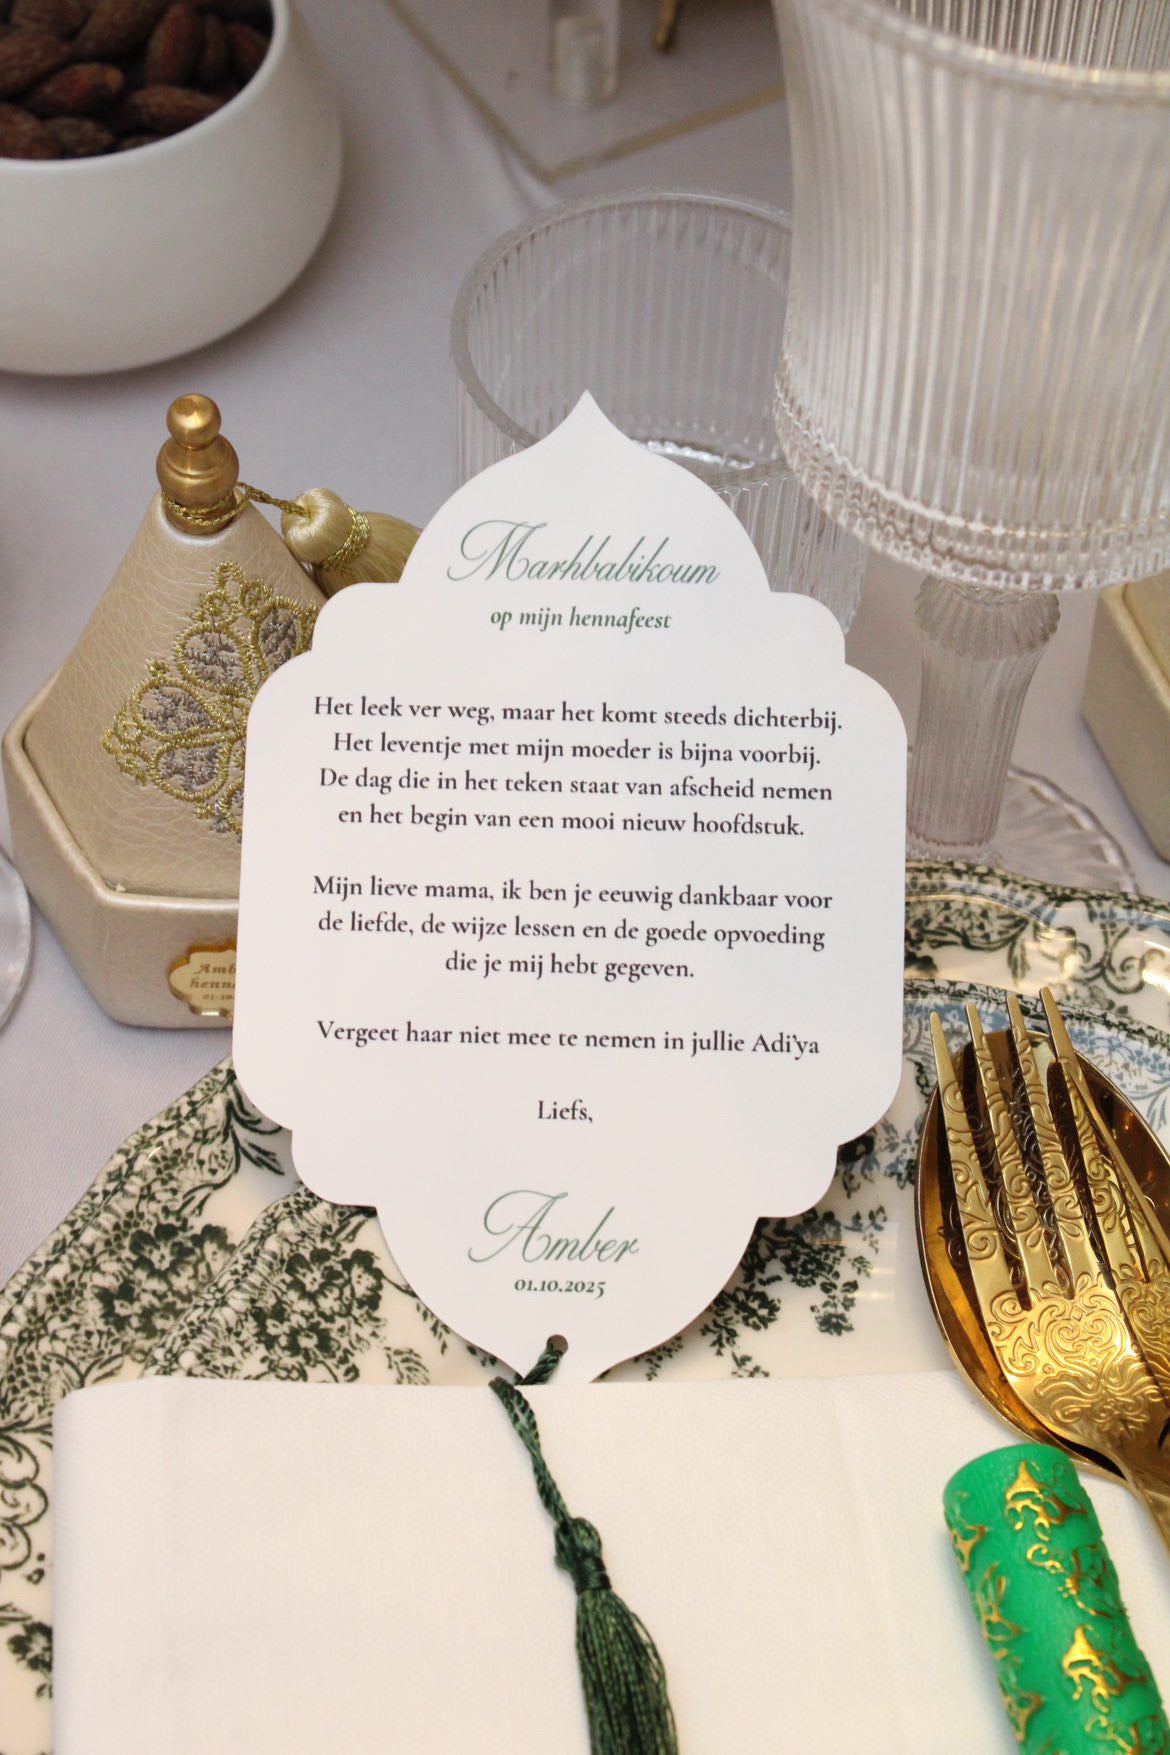 Marhbabikoum
op mijn hennafeest
Het leek ver weg, maar het komt steeds dichterbij.
Het leventje met mijn moeder is bijna voorbij.
De dag die in het teken staat van afscheid nemen
en het begin van een mooi nieuw hoofdstuk.
Mijn lieve mama, ik ben je eeuwig dankbaar voor
de liefde, de wijze lessen en de goede opvoeding
die je mij hebt gegeven.
Vergeet haar niet mee te nemen in jullie Adi'ya
Liefs,
Amber
01.10.2025
Amb
henn
01-10